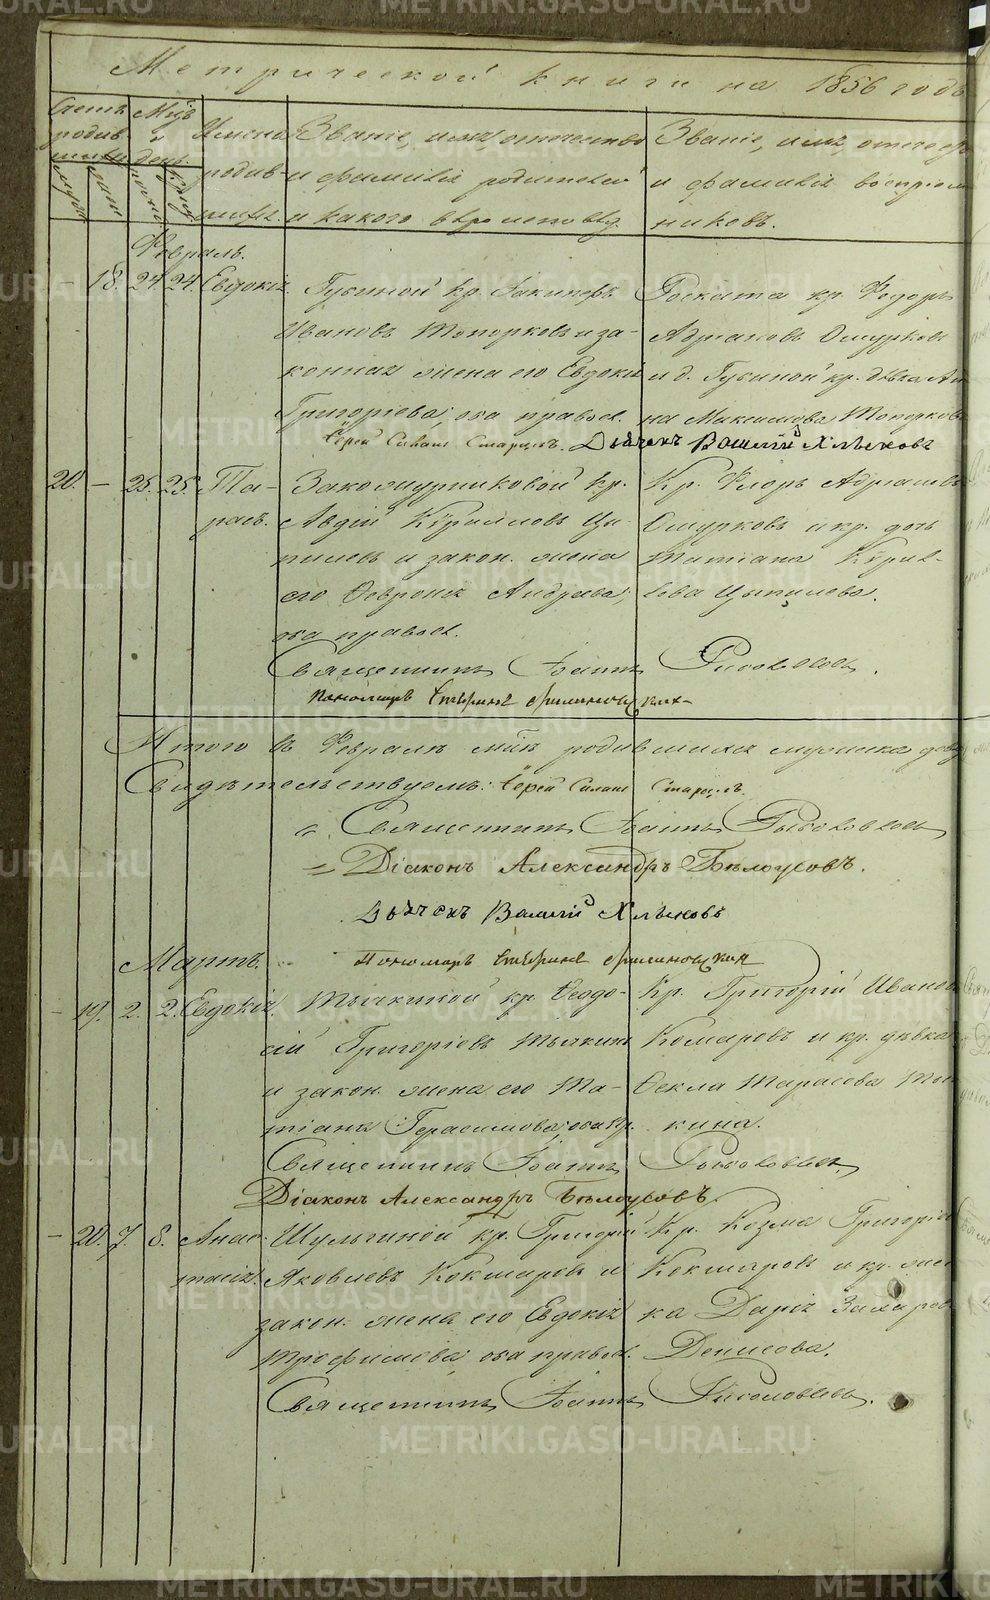 Метрической книги на 1856 годъ
Счетъ родившихся
Мцъ и день
Имена родившихся
Званіе, имя, отчество и фамилія родителей и какого вѣроисповѣд.
Званіе, имя, отчество и фамилія воспріемниковъ.
муж.
жен.
Февраль.
— 18. 24. 24. Евдокія
Губиной кр. Іакинфъ
Ивановъ Топорковъ и за-
конная жена его Евдокія
Григоріева, оба правосл.
кр. Федоръ
Адріановъ
и д. Губиной кр. дѣвка Ан
на Максимова Топорков
Іерей Старцевъ. Дьячекъ Василій Хлыновъ
20. — 25. 25. Па-
раск.
Кр.
Авдій Кириловъ Ци-
пилевъ и закон. жена
его Февронія Андреева,
оба правосл.
Кр. Флоръ Адріановъ
и кр. дочь
Татіана Кирил-
лова Цыпилева.
Священникъ Іоаннъ
Пономарь
Итого въ Февралѣ мцѣ родившихся мужеска
Свидѣтельствуемъ: Іерей Старцевъ.
Священникъ Іоаннъ
Діаконъ Александръ Бѣлоусовъ.
Дьячекъ Василій Хлыновъ
Пономарь
Мартъ.
— 19. 2. 2. Евдокія.
Тычкиной кр. Феодо-
сій Григорьевъ Тычкинъ
и закон. жена его Та-
тіана Герасимова, оба пр.
Кр. Григорій Иванов
Комаровъ и кр. дѣвка
Фекла Тарасова Тыч
кина.
Священникъ Іоаннъ
Діаконъ Александръ Бѣлоусовъ.
— 20. 7. 8. Анас-
тасія.
Шульгиной кр. Григорій
Яковлевъ Кокшаровъ и
закон. жена его Евдокія
Трофимова, оба правосл.
Кр. Козма Григоріев
Кокшаровъ и кр. жен
ка Дарія Захаров
Денисова.
Священникъ Іоаннъ
METRIKI.GASO-URAL.RU